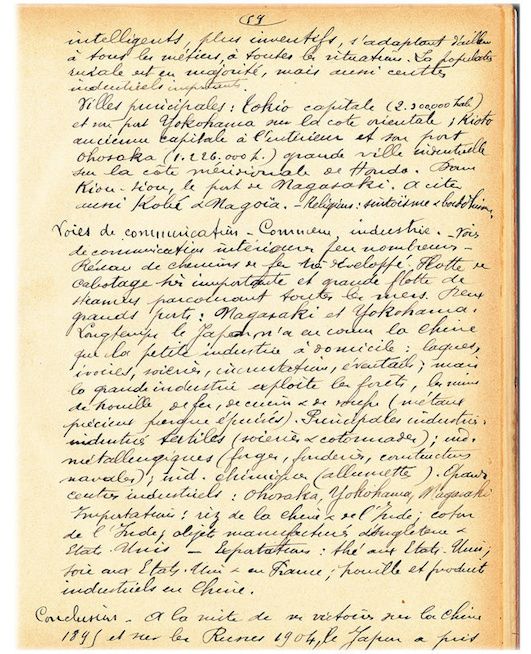 59
intelligents, plus inventifs, s'adaptant d'ailleurs
à tous les métiers, à toutes les situations. La population
rurale est en majorité, mais aussi centres
industriels importants.
Villes principales : Tokio capitale (2.300000 hab)
et son port Yokohama sur la cote orientale ; Kioto
ancienne capitale à l'intérieur et son port
Ohosaka (1.226.000 h.) grande ville industrielle
sur la côte méridionale de Hondo. Dans
Kiou-Siou, le port de Nagasaki. A citer
aussi Kobé & Nagoïa. - Religions : sintoïsme & bouddhisme.
Voies de communication - Commerce, industrie. - Voies
de communication intérieures peu nombreuses -
Réseau de chemins de fer très développé. Flotte de
cabotage très importante et grande flotte de
steamers parcourant toutes les mers. Deux
grands ports : Nagasaki et Yokohama.
Longtemps le Japon n'a eu comme la Chine
que la petite industrie à domicile : laques,
ivoires, soieries, incrustations, éventails ; mais
la grande industrie exploite les forêts, les mines
de houille de fer, de cuivre & de (métaux
précieux presque épuisés). Principales industries :
industries textiles (soieries & cotonnades) ; ind.
métallurgiques (forges, fonderies, constructions
navales) ; ind. chimiques (allumettes). Grands
centres industriels : Ohosaka, Yokohama, Nagasaki
Importations : riz de la Chine & de l'Inde ; coton
de l'Inde ; objets manufacturés d'Angleterre &
Etats-Unis - Exportations : thé aux Etats-Unis ;
soie aux Etats-Unis & en France ; houille et produits
industriels en Chine.
Conclusion - A la suite de ses victoires sur la Chine
1895 et sur les Russes 1904, le Japon a pris